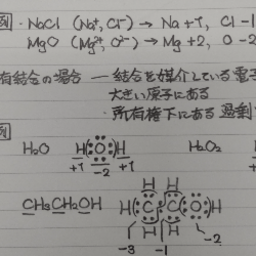 例)・NaCl (Na⁺, Cl⁻) → Na +1, Cl −1
MgO (Mg²⁺, O²⁻) → Mg +2, O −2
有結合の場合 — 結合を媒介している電子
大きい原子にある
・所有権下にある 過剰
例)
H₂O H:O:H H₂O₂
+1 −2 +1
CH₃CH₂OH H H
H:C:C:O:H
H H
−3 −1 −2